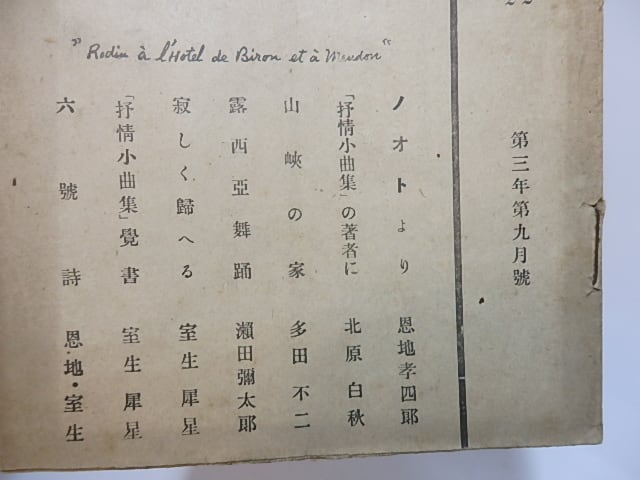 第三年第九月號
ノオトより 恩地孝四郎
「抒情小曲集」の著者に 北原白秋
山峽の家 多田不二
露西亞舞踊 瀨田彌太郎
寂しく歸へる 室生犀星
「抒情小曲集」覺書 室生犀星
六號詩 恩地・室生
"Rodin à l'Hotel de Biron et à Meudon"